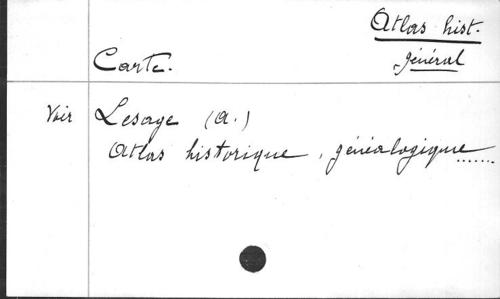 Atlas hist.
général
Carte.
Voir Lesage (A.)
Atlas historique, généalogique.......